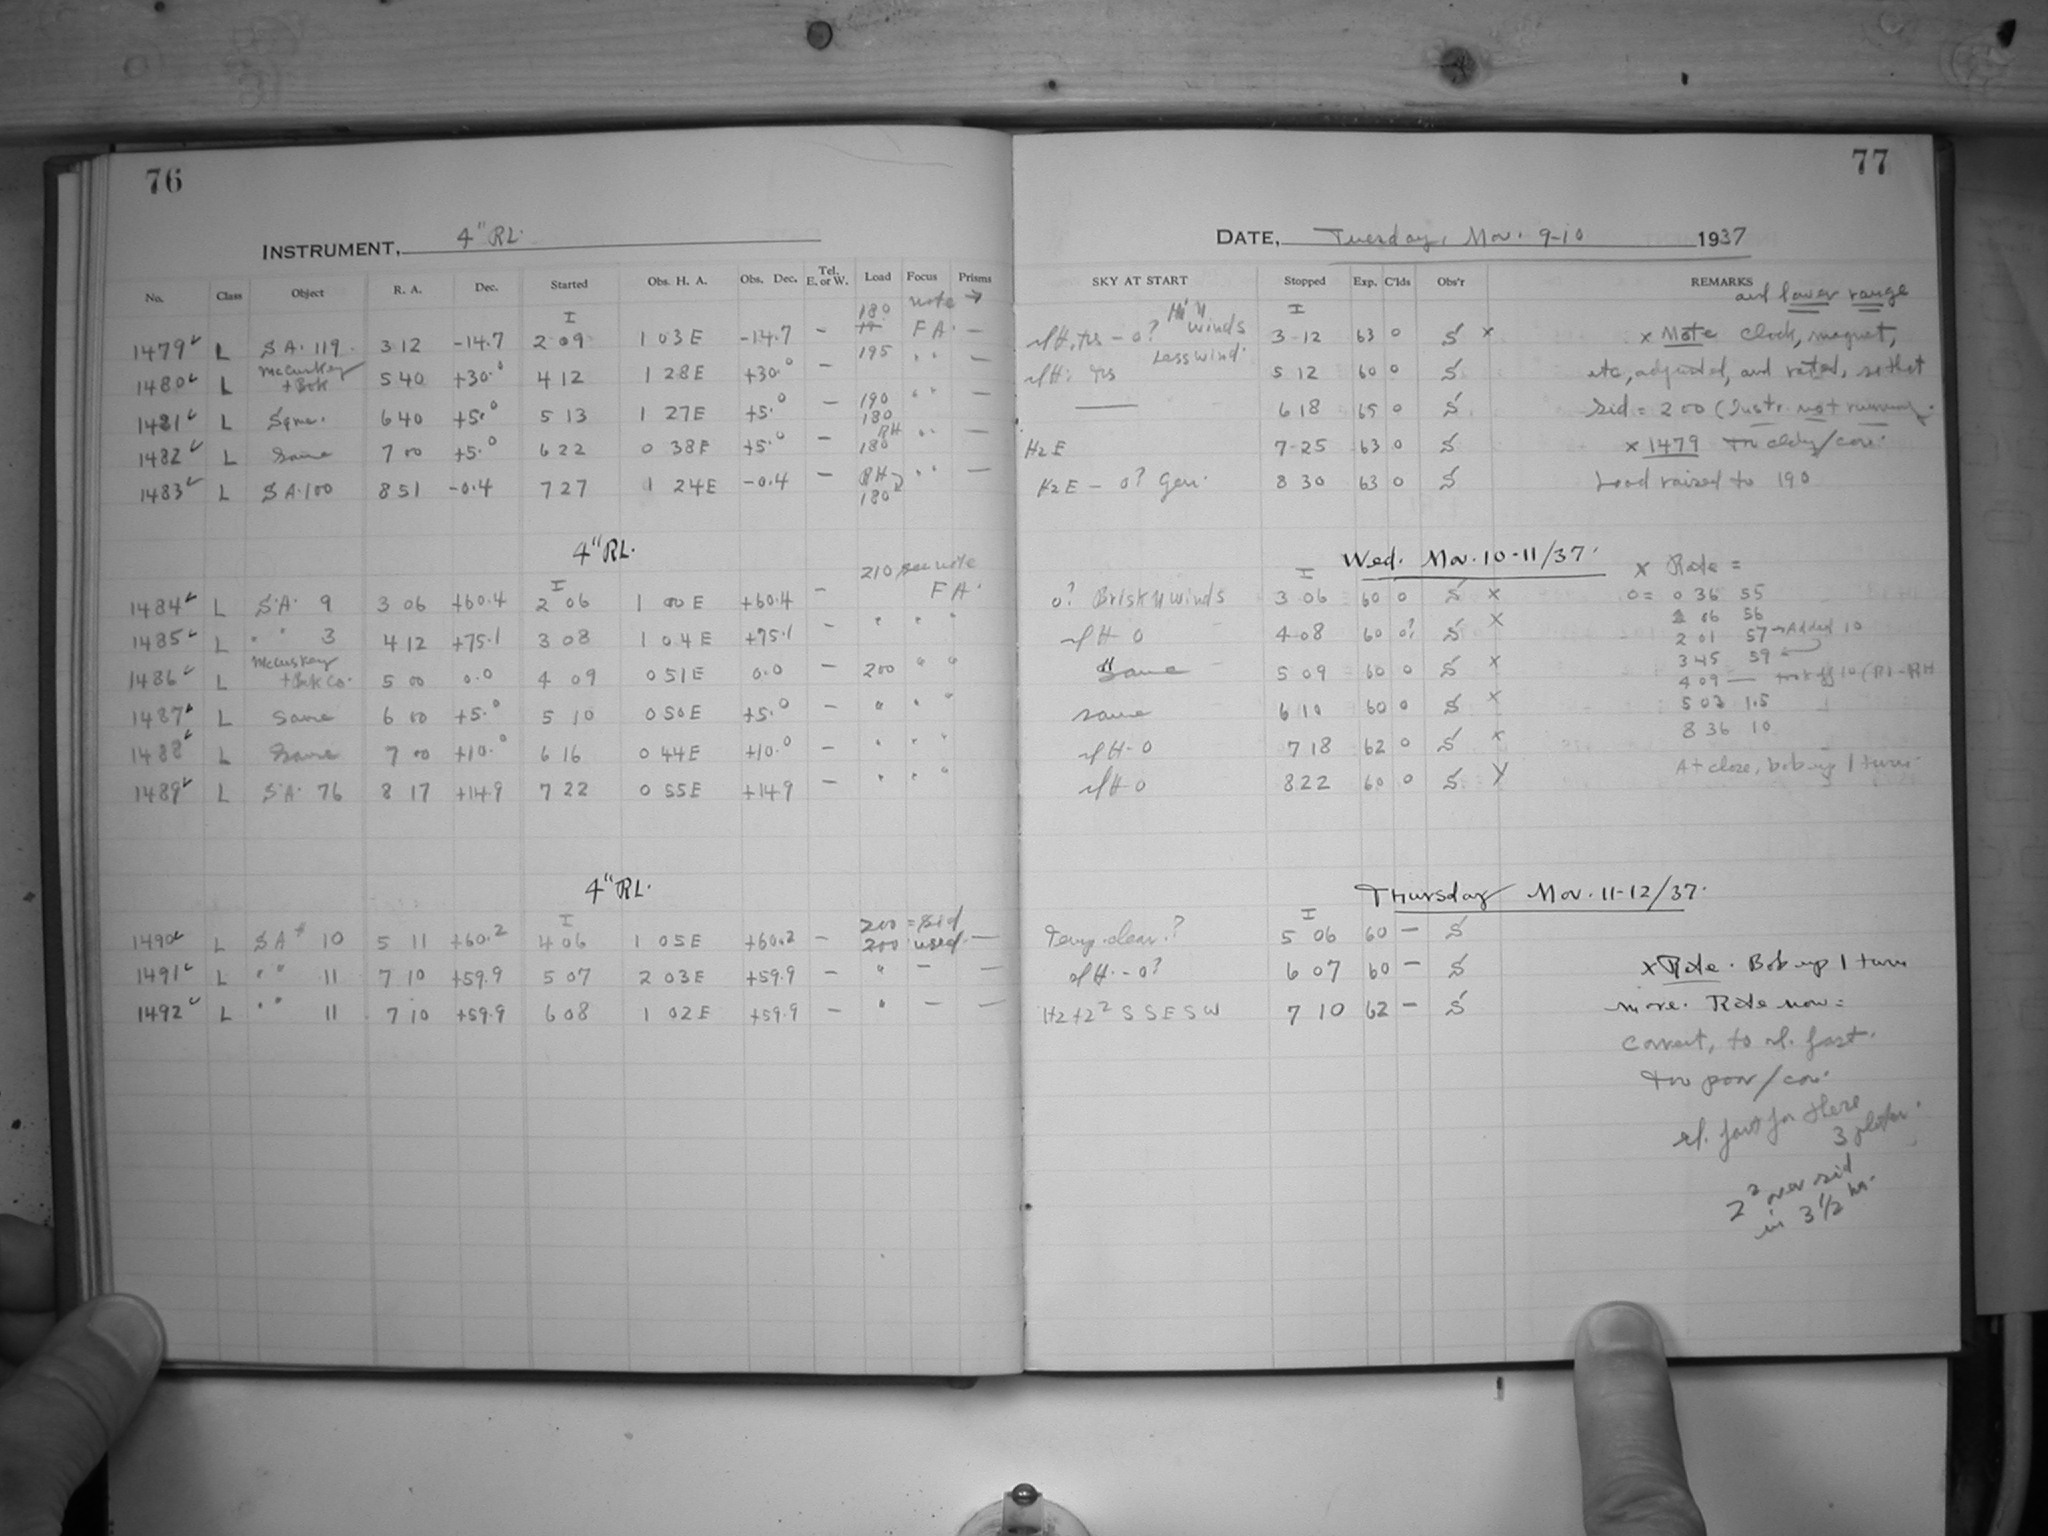 76
INSTRUMENT, 4" RL.
No. Class Object R. A. Dec. Started Obs. H. A. Obs. Dec. Tel. E. or W. Load Focus Prisms
I 180 note →
1479 L SA. 119. 3 12 -14.7 2 09 1 03 E -14.7 - F A. -
McCuskey 195
1480 L + Bok 5 40 +30.0 4 12 1 28 E +30.0 - " " -
1481 L Same. 6 40 +5.0 5 13 1 27 E +5.0 - 190 180 " " -
1482 L Same 7 00 +5.0 6 22 0 38 E +5.0 - RH 180 " " -
1483 L SA. 100 8 51 -0.4 7 27 1 24 E -0.4 - RH 180 " " -
4" RL.
I 210 see note
1484 L S.A. 9 3 06 +60.4 2 06 1 00 E +60.4 - F A.
1485 L " " 3 4 12 +75.1 3 08 1 04 E +75.1 - " " "
McCuskey
1486 L + Bok Co. 5 00 0.0 4 09 0 51 E 0.0 - 200 " "
1487 L Same 6 00 +5.0 5 10 0 50 E +5.0 - " " "
1488 L Same 7 00 +10.0 6 16 0 44 E +10.0 - " " "
1489 L S.A. 76 8 17 +14.9 7 22 0 55 E +14.9 - " " "
4" RL.
I 200 = sid
1490 L SA 10 5 11 +60.2 4 06 1 05 E +60.2 - 200 used -
1491 L " " 11 7 10 +59.9 5 07 2 03 E +59.9 - " - -
1492 L " " 11 7 10 +59.9 6 08 1 02 E +59.9 - " - -
77
DATE, Tuesday, Nov. 9-10 1937
SKY AT START Stopped Exp. C'lds Obs'r REMARKS
and lower range
Hi N winds I
- 0? 3 12 63 0 S x x Note Clock, magnet,
Less wind.
5 12 60 0 S etc, adjusted, and rated, so that
— 6 18 65 0 S sid = 200 (Instr. not running.
H2E 7 25 63 0 S x 1479 cldy/core
H2E - 0? Gen. 8 30 63 0 S Load raised to 190
Wed. Nov. 10-11/37.
I x Rate =
0? Brisk N winds 3 06 60 0 S x 0 = 0 36 55
06 56
H 0 4 08 60 0? S x 2 01 57 → Added 10
3 45 59
" Same 5 09 60 0 S x 4 09 — took off 10
same 6 10 60 0 S x 5 03 1.5
H 0 7 18 62 0 S x 8 36 10
H 0 8 22 60 0 S x At close, bob up 1 turn.
Thursday Nov. 11-12/37.
I
Temp. clear? 5 06 60 - S
H - 0? 6 07 60 - S x Rate. Bob up 1 turn
7 10 62 - S more. Rate now =
Correct, to sl. fast.
sl. fast for these
3 plates.
over sid
in 3 1/2 hr.